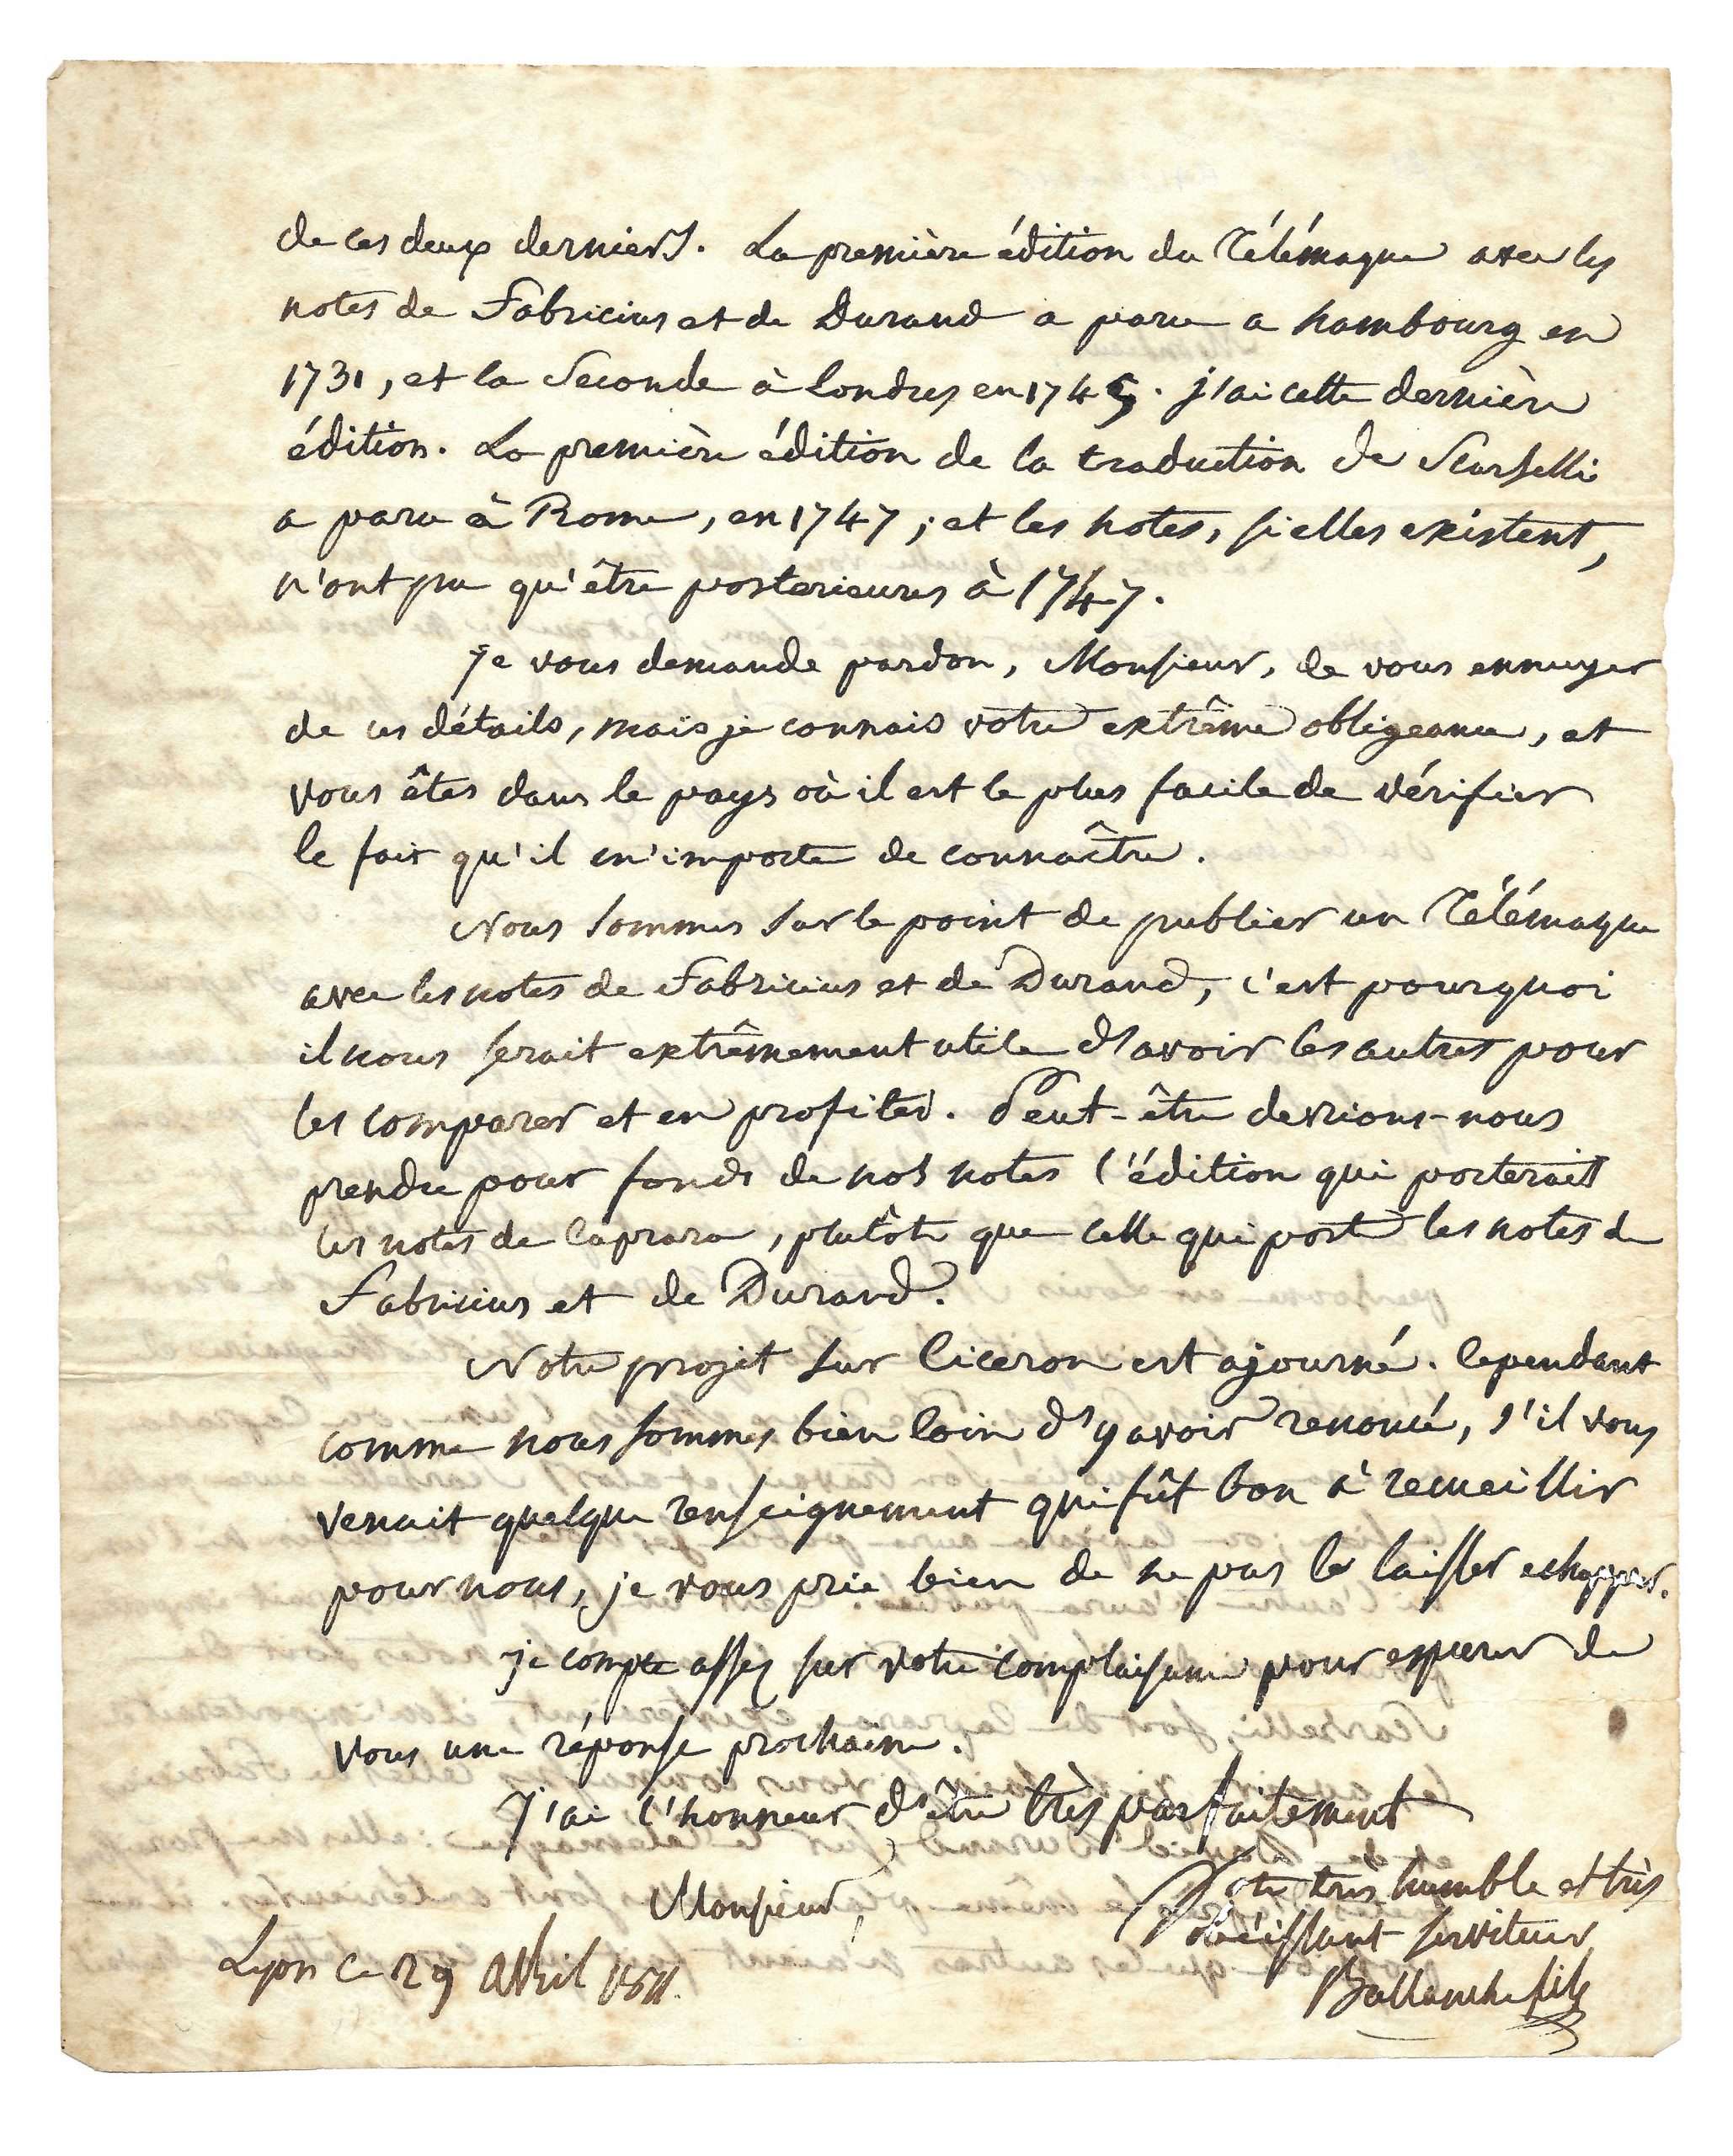 de ces deux derniers. La première édition du Télémaque avec les
notes de Fabricius et de Durand a paru a hambourg en
1731, et la seconde à Londres en 1745. j'ai cette dernière
édition. La première édition de la traduction de Scarselli
a paru à Rome, en 1747 ; et les notes, si elles existent,
n'ont pu qu'être posterieures à 1747.
je vous demande pardon, Monsieur, de vous ennuyer
de ces détails, mais je connais votre extrême obligeance, et
vous êtes dans le pays où il est le plus facile de vérifier
le fait qu'il m'importe de connaître.
Nous sommes sur le point de publier un Télémaque
avec les notes de Fabricius et de Durand, c'est pourquoi
il nous serait extrêmement utile d'avoir les autres pour
les comparer et en profiter. Peut-être devrions-nous
prendre pour fonds de nos notes l'édition qui porterait
les notes de Caprara, plutôt que celle qui porte les notes de
Fabricius et de Durand.
Notre projet sur Ciceron est ajourné. Cependant
comme nous sommes bien loin d'y avoir renoncé, s'il vous
venait quelque renseignement qui fût bon à recueillir
pour nous, je vous prie bien de ne pas le laisser echapper.
je compte assez sur votre complaisance pour esperer de
vous une réponse prochaine.
J'ai l'honneur d'être très parfaitement
Monsieur,
Votre très humble et très
obéissant serviteur
Ballanche fils
Lyon ce 29 avril 1811.